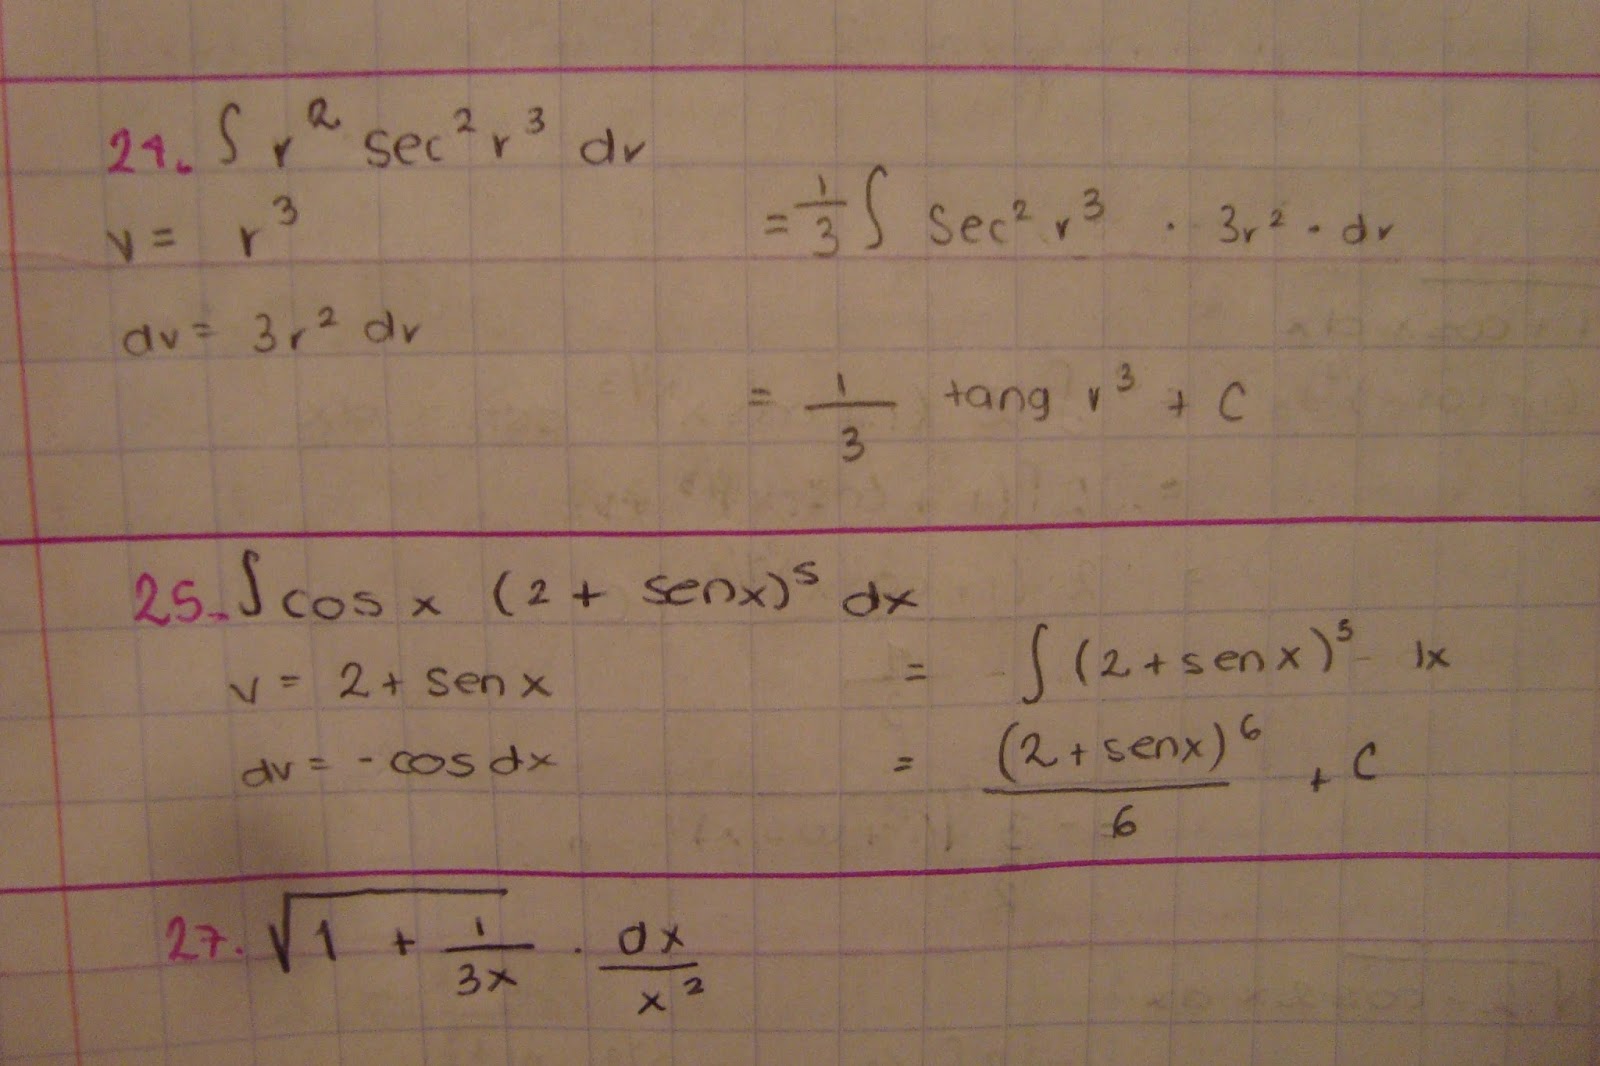 24. ∫ r² sec² r³ dr
v = r³
= 1/3 ∫ sec² r³ · 3r² · dr
dv = 3r² dr
= 1/3 tang r³ + C
25. ∫ cos x (2 + senx)⁵ dx
v = 2 + sen x
= ∫ (2 + sen x)⁵
dv = - cos dx
= (2 + senx)⁶/6 + C
27. √1 + 1/3x · dx/x²